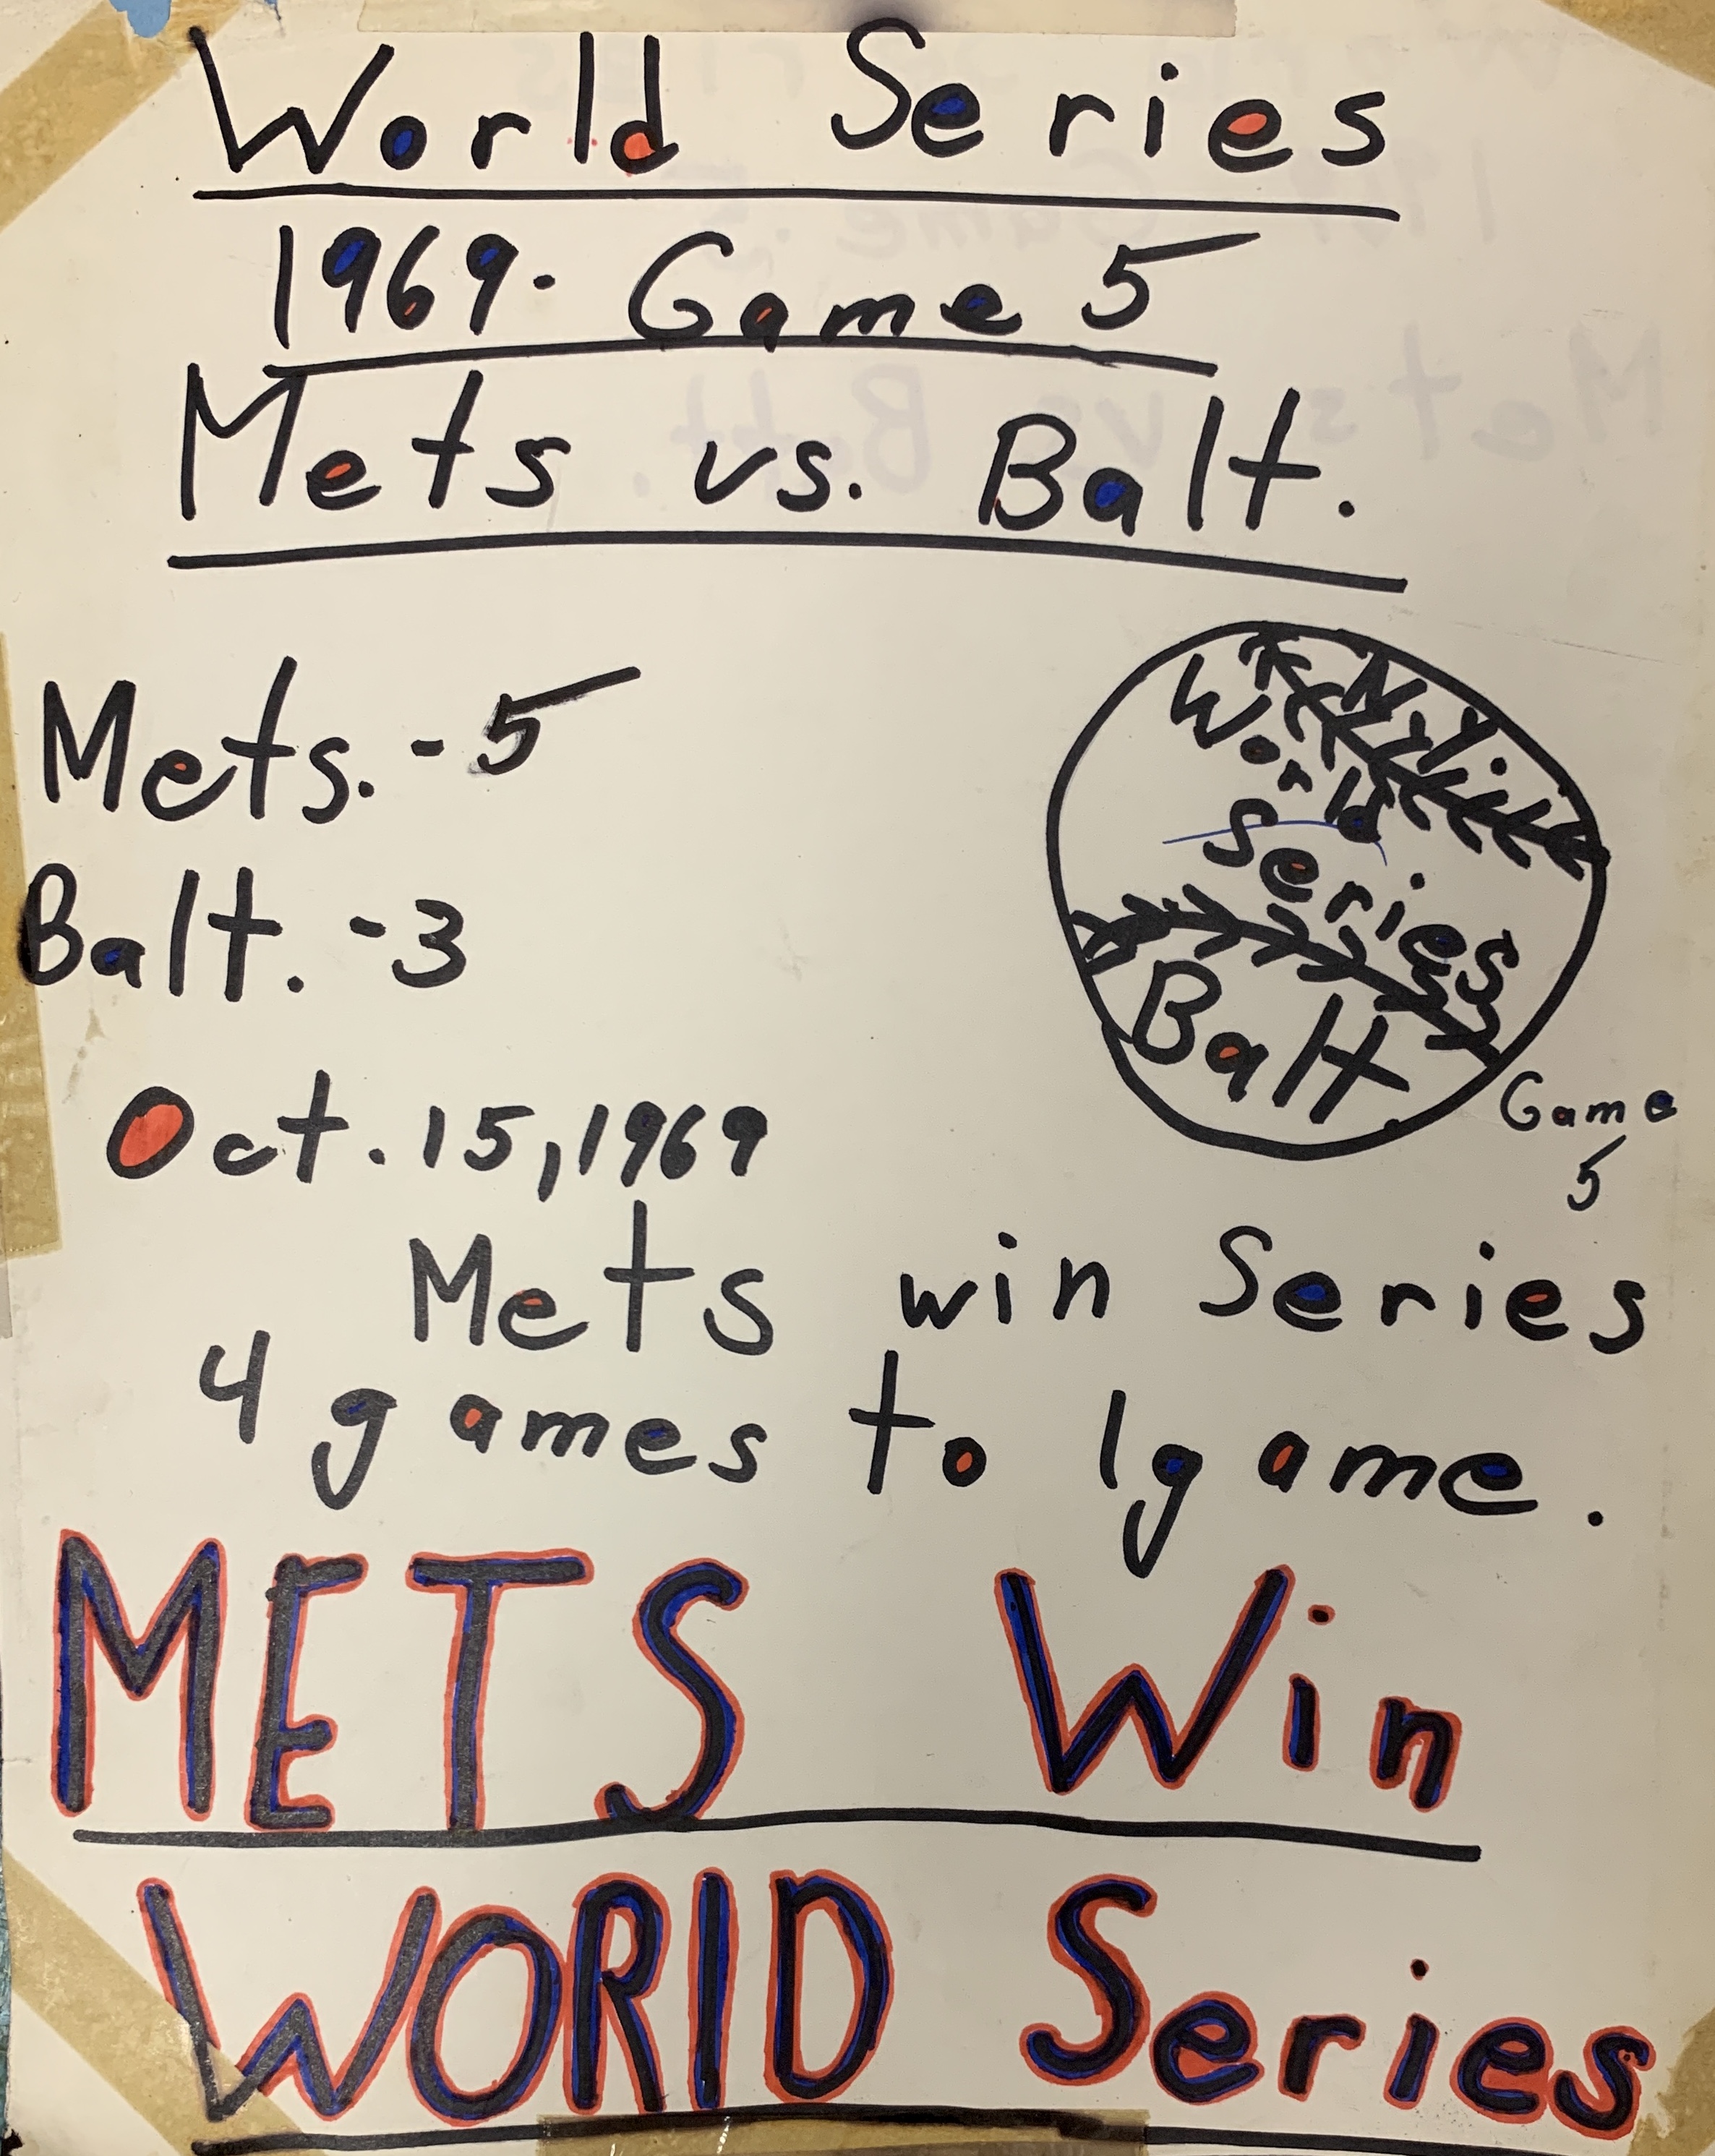 World Series
1969. Game 5
Mets vs. Balt.
Mets. - 5
Balt. - 3
N.Y.
World
Series
Balt
Game
5
Oct. 15, 1969
Mets win Series
4 games to 1 game.
METS Win
WORlD Series